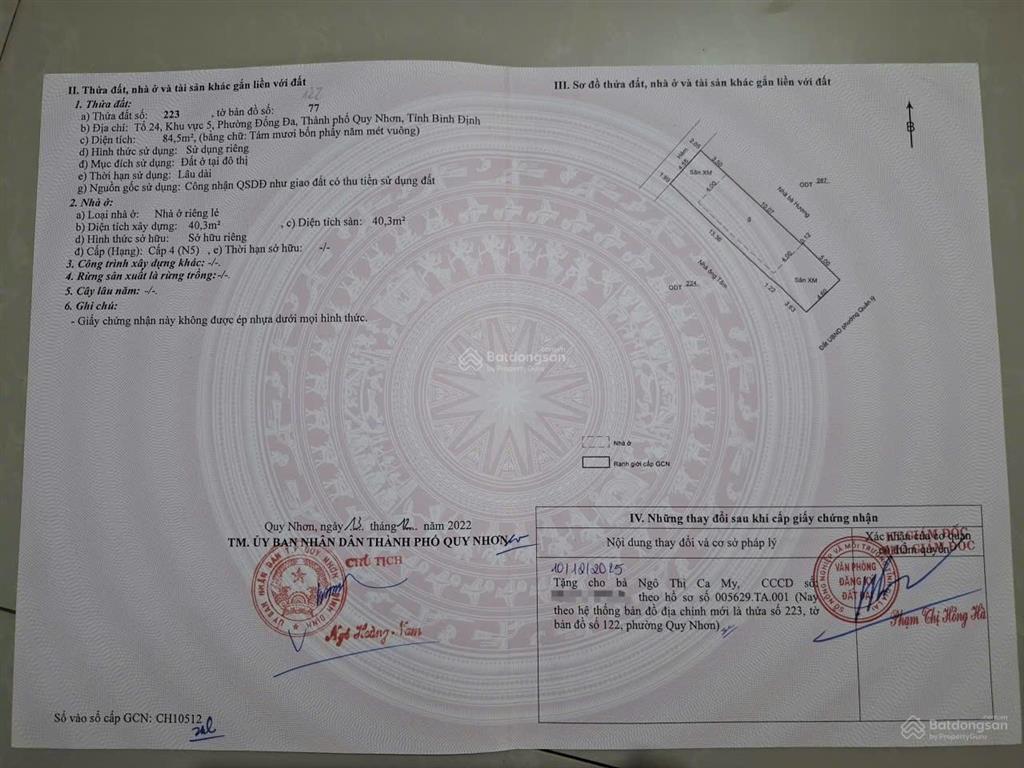 II. Thửa đất, nhà ở và tài sản khác gắn liền với đất
1. Thửa đất:
127
a) Thửa đất số: 223 , tờ bản đồ số: 77
b) Địa chỉ: Tổ 24, Khu vực 5, Phường Đống Đa, Thành phố Quy Nhơn, Tỉnh Bình Định
c) Diện tích: 84,5m², (bằng chữ: Tám mươi bốn phẩy năm mét vuông)
d) Hình thức sử dụng: Sử dụng riêng
đ) Mục đích sử dụng: Đất ở tại đô thị
e) Thời hạn sử dụng: Lâu dài
g) Nguồn gốc sử dụng: Công nhận QSDĐ như giao đất có thu tiền sử dụng đất
2. Nhà ở:
a) Loại nhà ở: Nhà ở riêng lẻ
b) Diện tích xây dựng: 40,3m² , c) Diện tích sàn: 40,3m²
d) Hình thức sở hữu: Sở hữu riêng
đ) Cấp (Hạng): Cấp 4 (N5) , e) Thời hạn sở hữu: -/-
3. Công trình xây dựng khác: -/-.
4. Rừng sản xuất là rừng trồng: -/-.
5. Cây lâu năm: -/-.
6. Ghi chú:
- Giấy chứng nhận này không được ép nhựa dưới mọi hình thức.
Quy Nhơn, ngày 13 tháng 12 năm 2022
TM. ỦY BAN NHÂN DÂN THÀNH PHỐ QUY NHƠN
CHỦ TỊCH
Ngô Hoàng Nam
Số vào sổ cấp GCN: CH10512
III. Sơ đồ thửa đất, nhà ở và tài sản khác gắn liền với đất
B
Hẻm
2.05
3.50
4.55
1.80
Sân XM
4.00
ODT 287
Nhà bà Hương
10.07
13.36
0.12
4.00
5.00
Nhà ông Tâm
ODT 224
1.22
3.63
Sân XM
4.60
Đất UBND phường Quản lý
Nhà ở
Ranh giới cấp GCN
IV. Những thay đổi sau khi cấp giấy chứng nhận
Nội dung thay đổi và cơ sở pháp lý
Xác nhận của cơ quan
có thẩm quyền
10/12/2025
Tặng cho bà Ngô Thị Ca My, CCCD số:
theo hồ sơ số 005629.TA.001 (Nay
theo hệ thống bản đồ địa chính mới là thửa số 223, tờ
bản đồ số 122, phường Quy Nhơn)
VĂN PHÒNG
ĐĂNG KÝ
ĐẤT ĐAI
Phạm Thị Hồng Hà
Batdongsan
by PropertyGuru
Batdongsan
by PropertyGuru